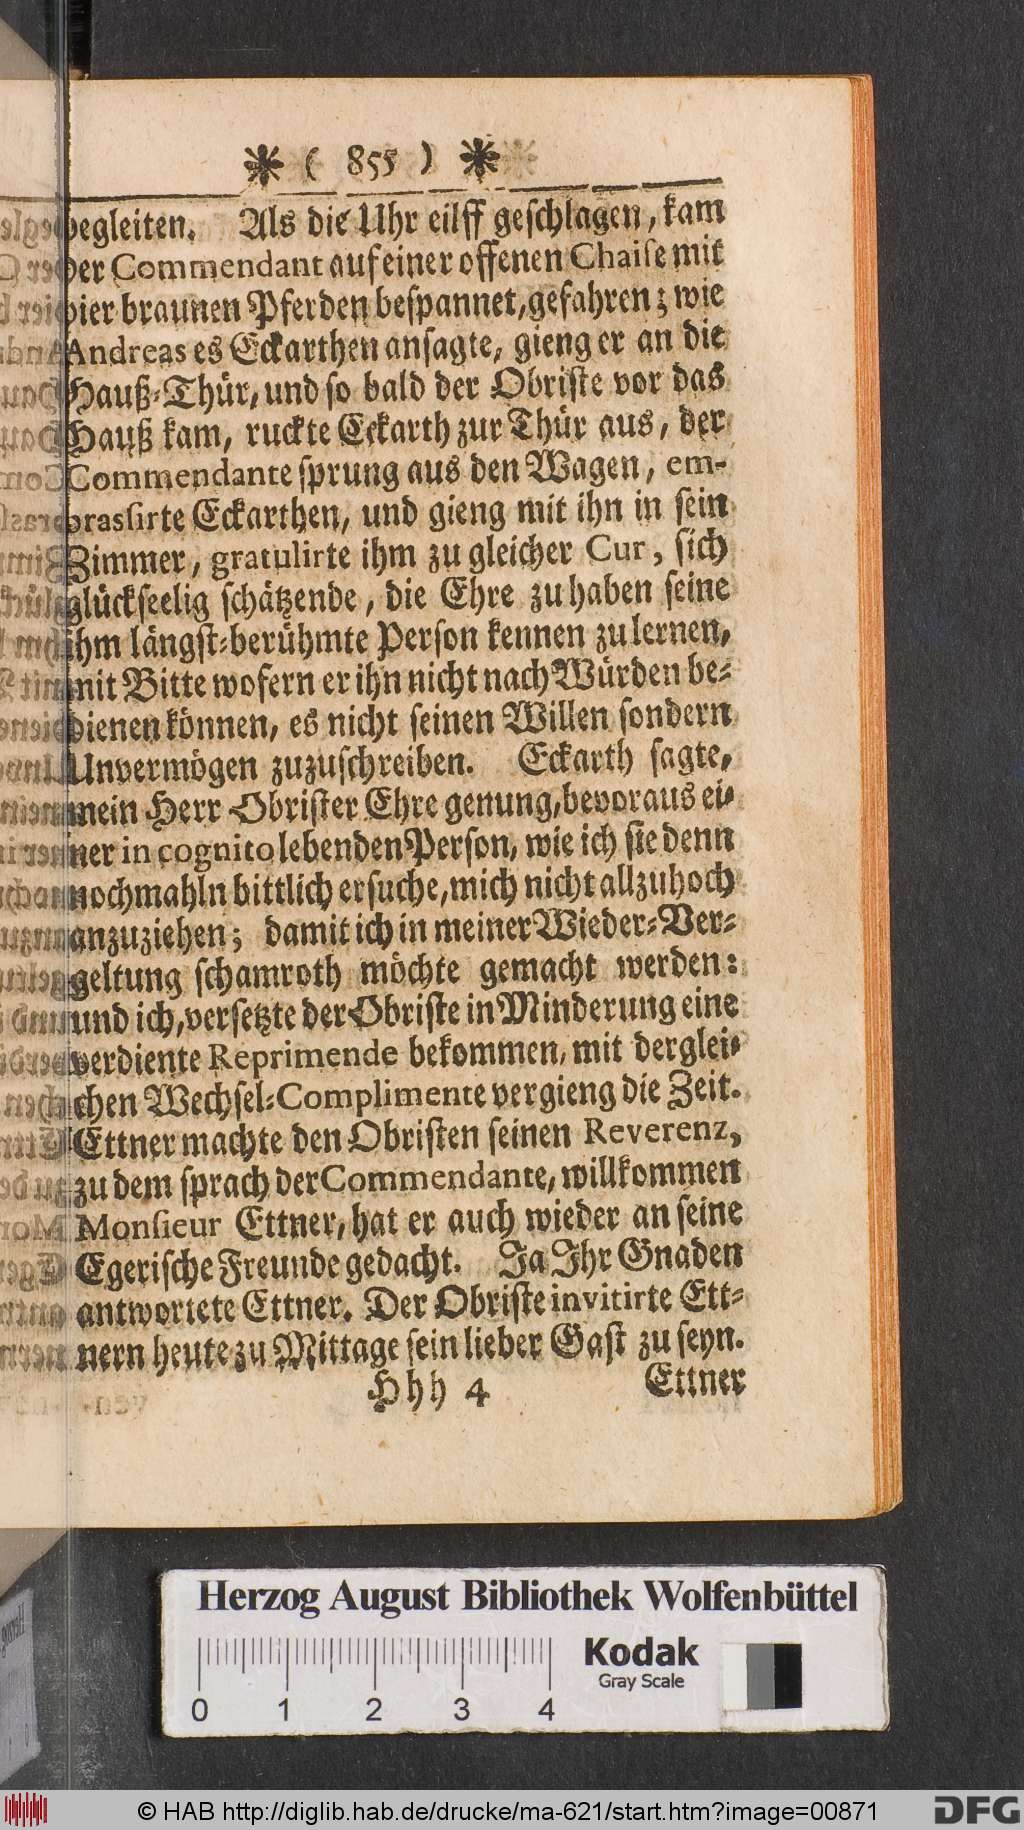 * ( 855 ) *
begleiten. Als die Uhr eilff geschlagen, kam
der Commendant auf einer offenen Chaise mit
vier braunen Pferden bespannet, gefahren; wie
Andreas es Eckarthen ansagte, gieng er an die
Hauß-Thür, und so bald der Obriste vor das
Hauß kam, ruckte Eckarth zur Thür aus, der
Commendante sprung aus den Wagen, em-
brassirte Eckarthen, und gieng mit ihn in sein
Zimmer, gratulirte ihm zu gleicher Cur, sich
glückseelig schätzende, die Ehre zu haben seine
ihm längst-berühmte Person kennen zu lernen,
mit Bitte wofern er ihn nicht nach Würden be-
dienen können, es nicht seinen Willen sondern
Unvermögen zuzuschreiben. Eckarth sagte,
mein Herr Obrister Ehre genung, bevoraus ei-
ner in cognito lebenden Person, wie ich sie denn
nochmahln bittlich ersuche, mich nicht allzuhoch
anzuziehen; damit ich in meiner Wieder-Ver-
geltung schamroth möchte gemacht werden:
und ich, versetzte der Obriste in Minderung eine
verdiente Reprimende bekommen, mit derglei-
chen Wechsel-Complimente vergieng die Zeit.
Ettner machte den Obristen seinen Reverenz,
zu dem sprach der Commendante, willkommen
Monsieur Ettner, hat er auch wieder an seine
Egerische Freunde gedacht. Ja Ihr Gnaden
antwortete Ettner. Der Obriste invitirte Ett-
nern heute zu Mittage sein lieber Gast zu seyn.
Hhh 4 Ettner
Herzog August Bibliothek Wolfenbüttel
Kodak
Gray Scale
0 1 2 3 4
© HAB http://diglib.hab.de/drucke/ma-621/start.htm?image=00871
DFG